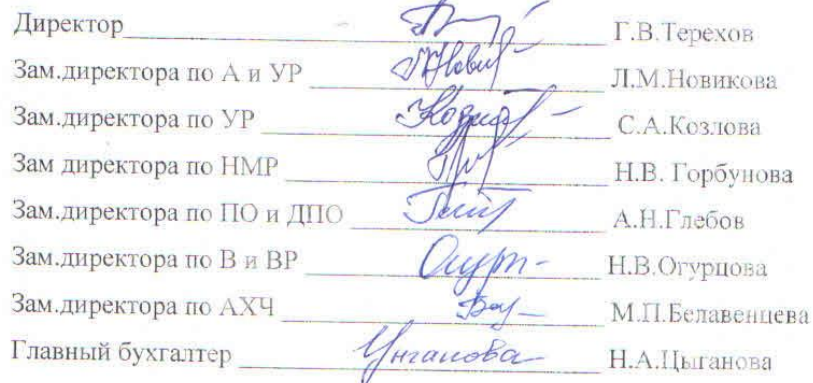 Директор Г.В.Терехов
Зам.директора по А и УР Л.М.Новикова
Зам.директора по УР С.А.Козлова
Зам директора по НМР Н.В. Горбунова
Зам.директора по ПО и ДПО А.Н.Глебов
Зам.директора по В и ВР Н.В.Огурцова
Зам.директора по АХЧ М.П.Белавенцева
Главный бухгалтер Н.А.Цыганова